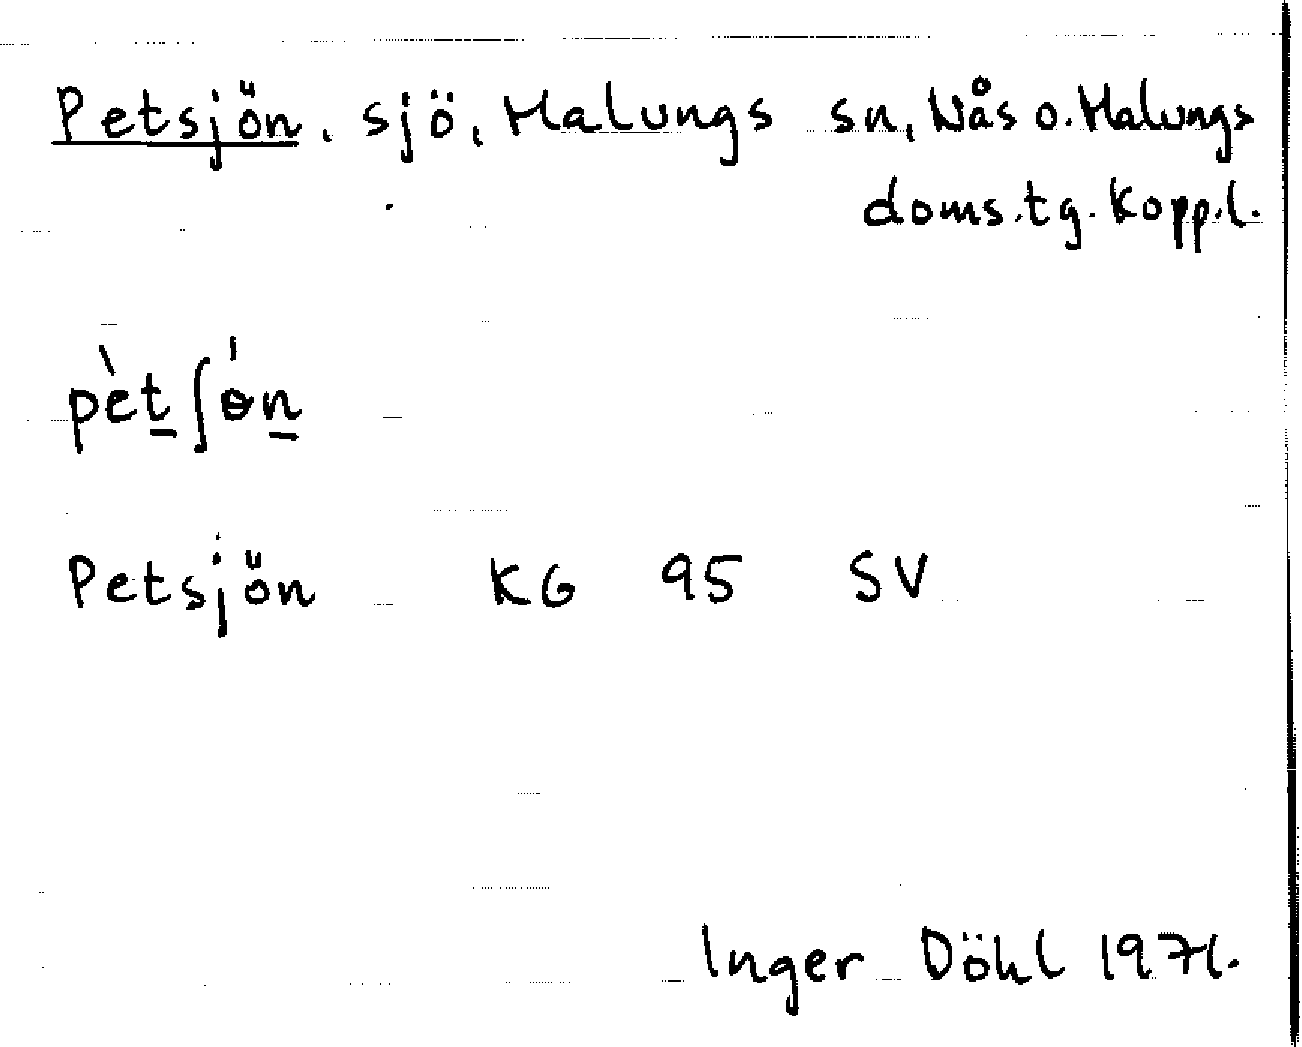 Petsjön, sjö, Malungs sn, Nås o. Malungs
doms.tg. Kopp.l.
pèt̲ʃɵ́n̲
Petsjön KG 95 SV
Inger Döhl 1971.